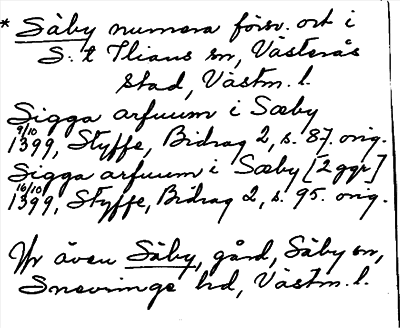 * Säby numera försv. ort i
S:t Ilians sn, Västerås
stad, Västm. l.
Sigga arfuum i Sæby
9/10 1399, Styffe, Bidrag 2, s. 87. orig.
Sigga arfuum i Sæby [2 ggr]
16/10 1399, Styffe, Bidrag 2, s. 95. orig.
Jfr även Säby, gård, Säby sn,
Snevringe hd, Västm. l.